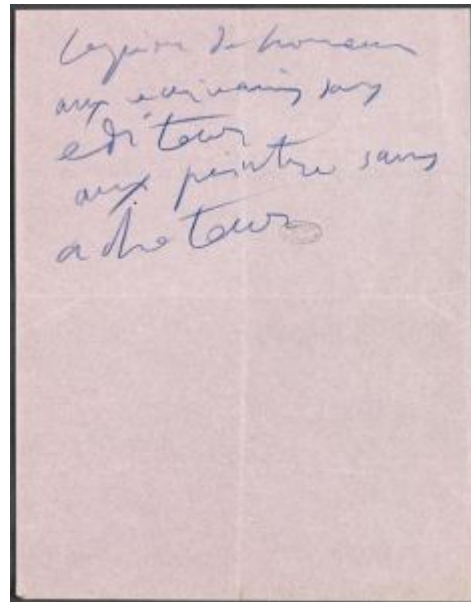 Legion de honneur
aux ecrivains sans
editeur
aux peintre sans
acheteur